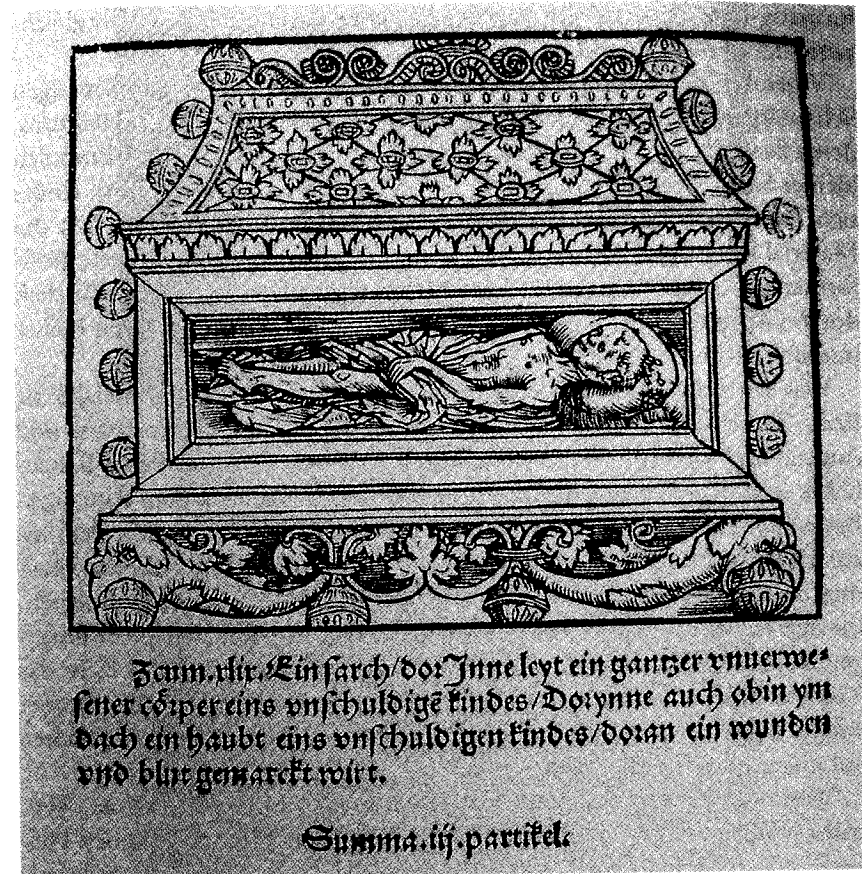 Zcum.xlix.Ein sarch/dor Jnne leyt ein gantzer vnuerwe⸗
sener cörper eins vnschuldigē kindes/Dorynne auch obin ym
dach ein haubt eins vnschuldigen kindes/doran ein wunden
vnd blut gemarckt wirt.
Summa.iij.partikel.